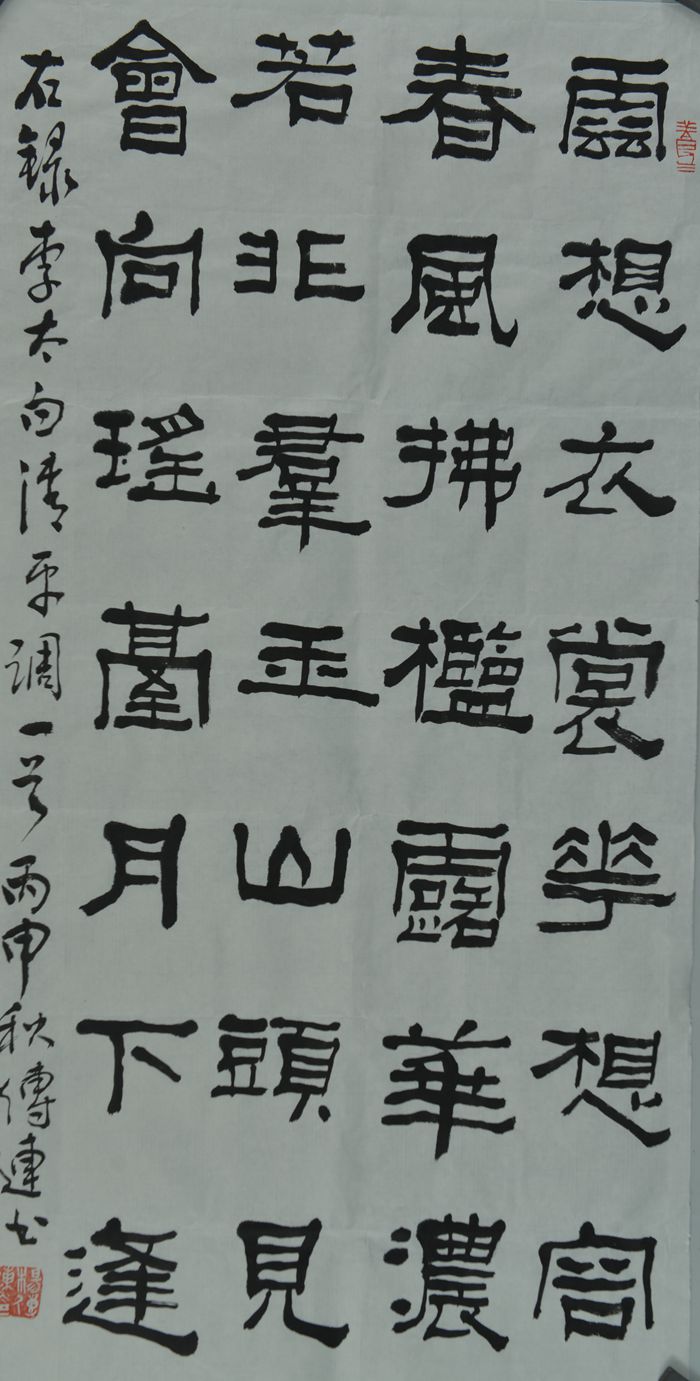 雲想衣裳花想容
春風拂檻露華濃
若非羣玉山頭見
會向瑤臺月下逢
右録李太白清平調一首丙申秋傳連书